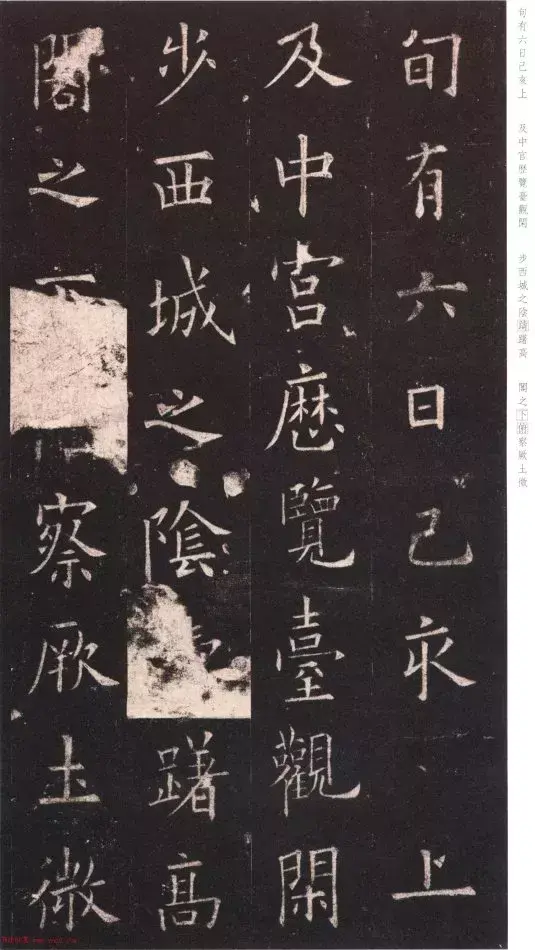 旬有六日己亥上
及中宫歴覽臺觀閑
步西城之陰躇高
閣之下察厥土微
旬有六日己亥上
及中宫歷覽臺觀閑
步西城之陰踌躇高
閣之下俯察厥土微